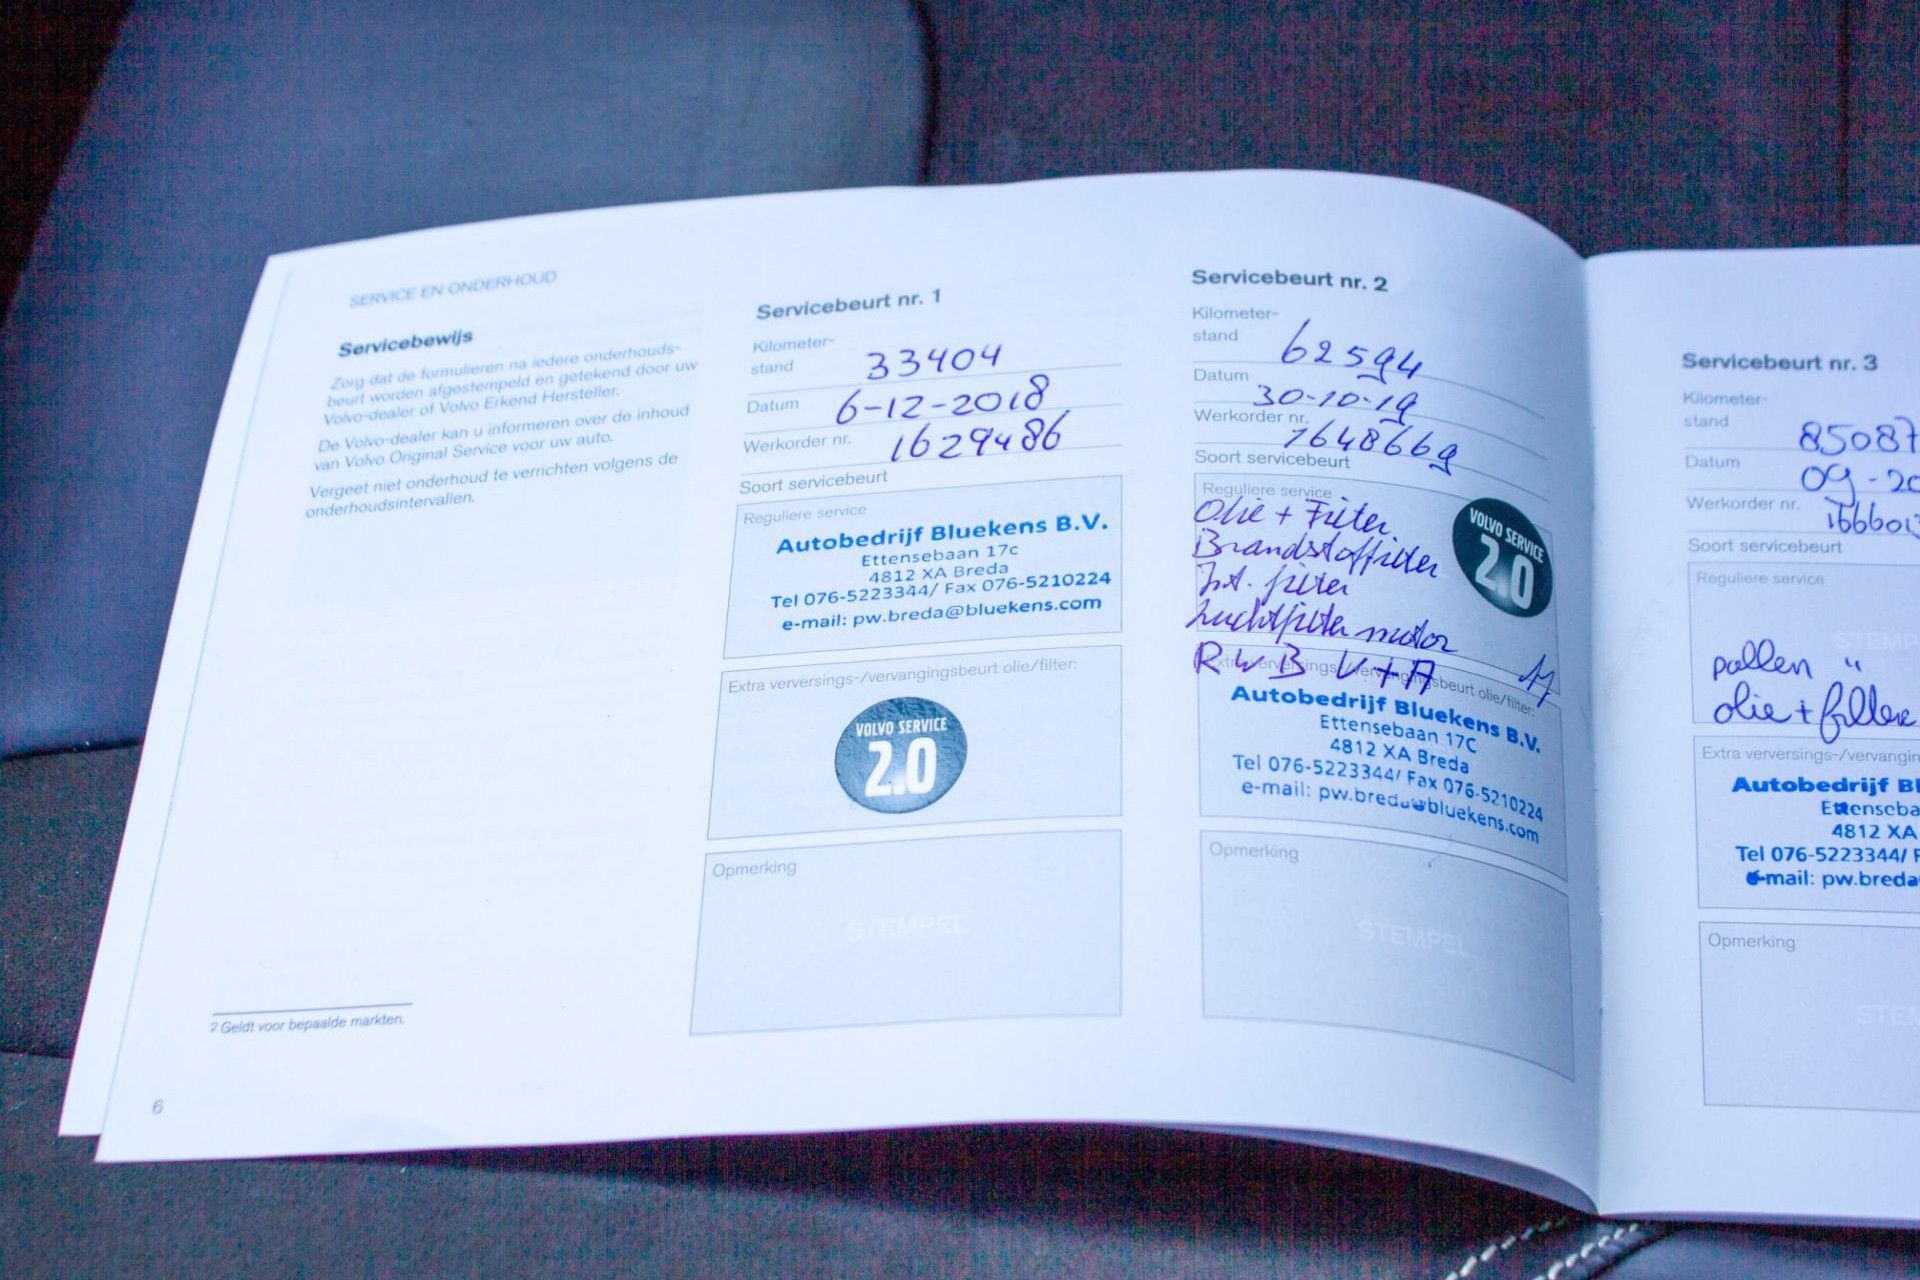 SERVICE EN ONDERHOUD
Servicebewijs
Zorg dat de formulieren na iedere onderhouds-
beurt worden afgestempeld en getekend door uw
Volvo-dealer of Volvo Erkend Hersteller.
De Volvo-dealer kan u informeren over de inhoud
van Volvo Original Service voor uw auto.
Vergeet niet onderhoud te verrichten volgens de
onderhoudsintervallen.
2 Geldt voor bepaalde markten.
6
Servicebeurt nr. 1
Kilometer-
stand 33404
Datum 6-12-2018
Werkorder nr. 1629486
Soort servicebeurt
Reguliere service
Autobedrijf Bluekens B.V.
Ettensebaan 17c
4812 XA Breda
Tel 076-5223344/ Fax 076-5210224
e-mail: pw.breda@bluekens.com
Extra verversings-/vervangingsbeurt olie/filter:
VOLVO SERVICE
2.0
Opmerking
STEMPEL
Servicebeurt nr. 2
Kilometer-
stand 62594
Datum 30-10-19
Werkorder nr. 1648669
Soort servicebeurt
Reguliere service
Olie + Filter
Brandstoffilter
Int. filter
Luchtfilter motor
RWB V+A
VOLVO SERVICE
2.0
Extra verversings-/vervangingsbeurt olie/filter:
Autobedrijf Bluekens B.V.
Ettensebaan 17C
4812 XA Breda
Tel 076-5223344/ Fax 076-5210224
e-mail: pw.breda@bluekens.com
Opmerking
STEMPEL
Servicebeurt nr. 3
Kilometer-
stand 85087
Datum 09-20
Werkorder nr.
Soort servicebeurt
Reguliere service
STEMP
pollen "
olie + filter
Extra verversings-/vervangin
Autobedrijf Bl
Ettenseba
4812 XA
Tel 076-5223344/ F
e-mail: pw.breda
Opmerking
STEM